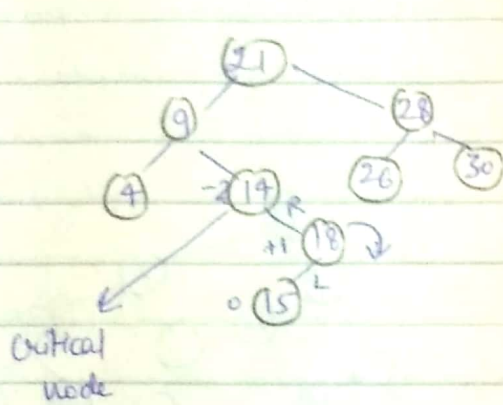 21
9 28
4 -2 14 R 26 30
+1 18
0 15 L
Critical
node